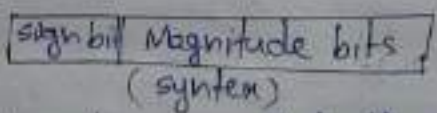 sign bit Magnitude bits
(syntex)